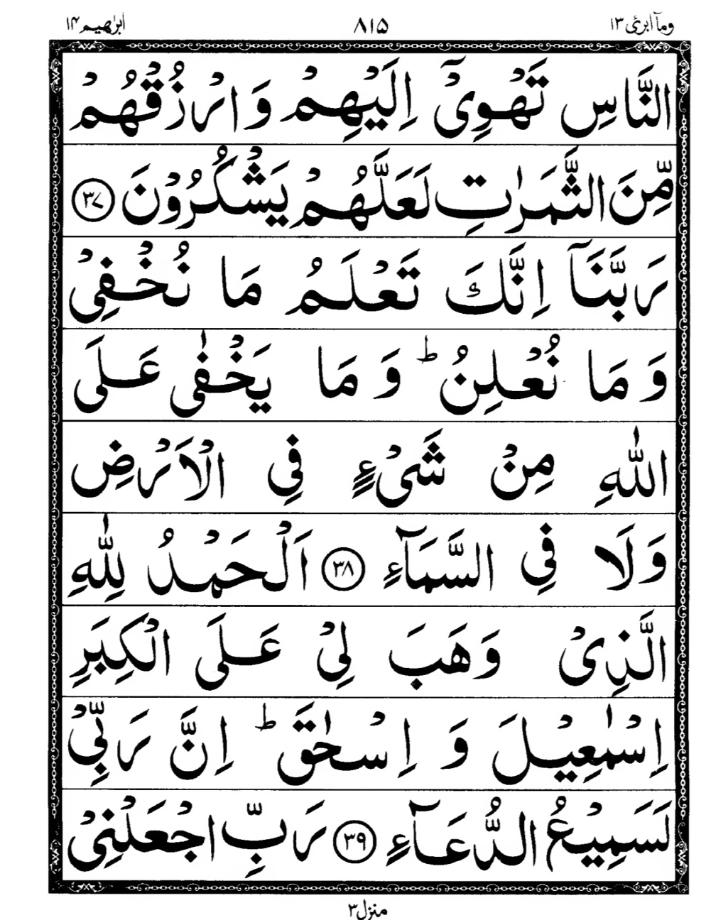 وما ابرئ ١٣ ٨١٥ ابرٰهيم ١٤
النَّاسِ تَهْوِيْۤ اِلَيْهِمْ وَارْزُقْهُمْ
مِّنَ الثَّمَرٰتِ لَعَلَّهُمْ يَشْكُرُوْنَ ٣٧
رَبَّنَاۤ اِنَّكَ تَعْلَمُ مَا نُخْفِيْ
وَمَا نُعْلِنُ ؕ وَمَا يَخْفٰى عَلَى
اللّٰهِ مِنْ شَيْءٍ فِي الْاَرْضِ
وَلَا فِي السَّمَآءِ ٣٨ اَلْحَمْدُ لِلّٰهِ
الَّذِيْ وَهَبَ لِيْ عَلَى الْكِبَرِ
اِسْمٰعِيْلَ وَ اِسْحٰقَ ؕ اِنَّ رَبِّيْ
لَسَمِيْعُ الدُّعَآءِ ٣٩ رَبِّ اجْعَلْنِيْ
منزل ٣